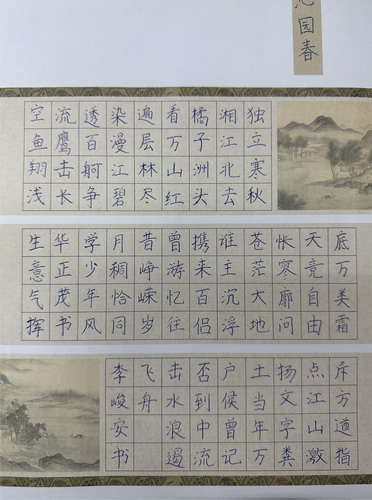 园春
独立寒秋
湘江北去
橘子洲头
看万山红
遍层林尽
染漫江碧
透百舸争
流鹰击长
空鱼翔浅
底万类霜
天竞自由
怅寒廓问
苍茫大地
谁主沉浮
携来百侣
曾游忆往
昔峥嵘岁
月稠恰同
学少年风
华正茂书
生意气挥
斥方遒指
点江山激
扬文字粪
土当年万
户候曾记
否到中流
击水浪遏
飞舟
李峻安书